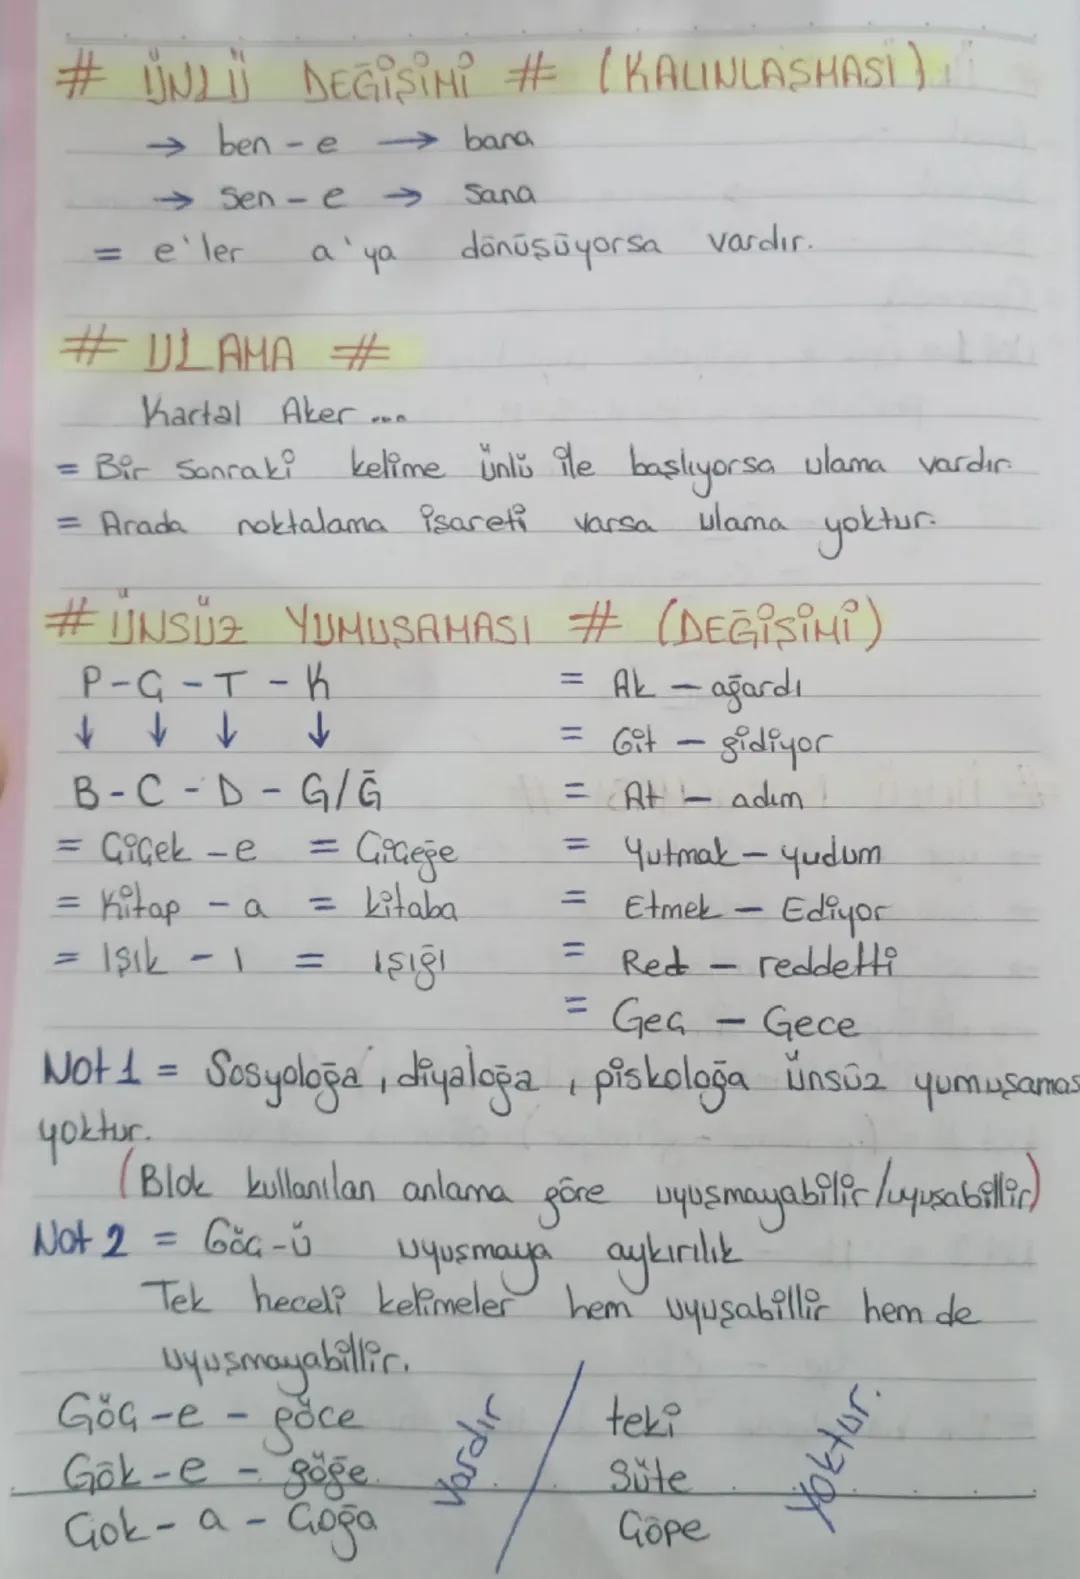 # ÜNLÜ DEĞİŞİMİ # (KALINLAŞMASI)
→ ben - e → bana
→ sen - e → sana
= e'ler a'ya dönüşüyorsa vardır.
# ULAMA #
Kartal Aker ...
= Bir sonraki kelime ünlü ile başlıyorsa ulama vardır.
= Arada noktalama işareti varsa ulama yoktur.
# ÜNSÜZ YUMUŞAMASI # (DEĞİŞİMİ)
P - Ç - T - K
↓ ↓ ↓ ↓
B - C - D - G/Ğ
= Çiçek - e = Çiçeğe
= Kitap - a = kitaba
= Işık - ı = ışığı
= Ak — ağardı
= Git — gidiyor
= At — adım
= Yutmak — yudum
= Etmek — Ediyor
= Red — reddetti
= Geç — Gece
Not 1 = Sosyoloğa, diyaloğa, piskoloğa ünsüz yumuşamas
yoktur.
(Blok kullanılan anlama göre uyuşmayabilir/uyuşabillir)
Not 2 = Göç-ü uyuşmaya aykırılık
Tek heceli kelimeler hem uyuşabillir hem de
uyuşmayabillir.
Göç - e - göce
Gök - e - göğe
Çok - a - Çoğa
Vardır
teki
Süte
Çöpe
Yoktur.